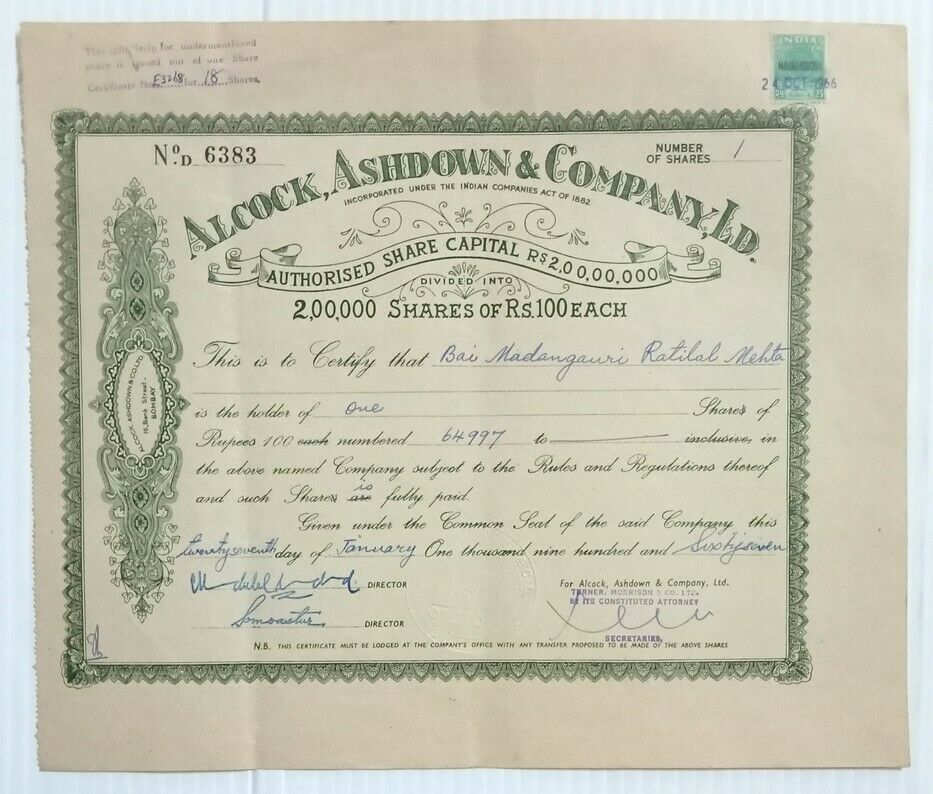 This split Scrip for undermentioned
share is issued out of one Share
Certificate No. E3268 for 18 Shares.
INDIA
MAHARASHTRA
24 OCT 1966
No. D 6383
NUMBER
OF SHARES 1
ALCOCK, ASHDOWN & COMPANY, LD.
INCORPORATED UNDER THE INDIAN COMPANIES ACT OF 1882
AUTHORISED SHARE CAPITAL RS 2,00,00,000
DIVIDED INTO
2,00,000 SHARES OF RS. 100 EACH
This is to Certify that Bai Madangauri Ratilal Mehta
is the holder of one Shares of
Rupees 100 each numbered 64997 to inclusive, in
the above named Company subject to the Rules and Regulations thereof
and such Shares are is fully paid.
Given under the Common Seal of the said Company this
twentyseventh day of January One thousand nine hundred and Sixtyseven
DIRECTOR
DIRECTOR
For Alcock, Ashdown & Company, Ltd.
TURNER, MORRISON & CO. LTD.
BY ITS CONSTITUTED ATTORNEY
SECRETARIES.
N.B. THIS CERTIFICATE MUST BE LODGED AT THE COMPANY'S OFFICE WITH ANY TRANSFER PROPOSED TO BE MADE OF THE ABOVE SHARES
ALCOCK, ASHDOWN & CO. LTD
16, Bank Street,
BOMBAY